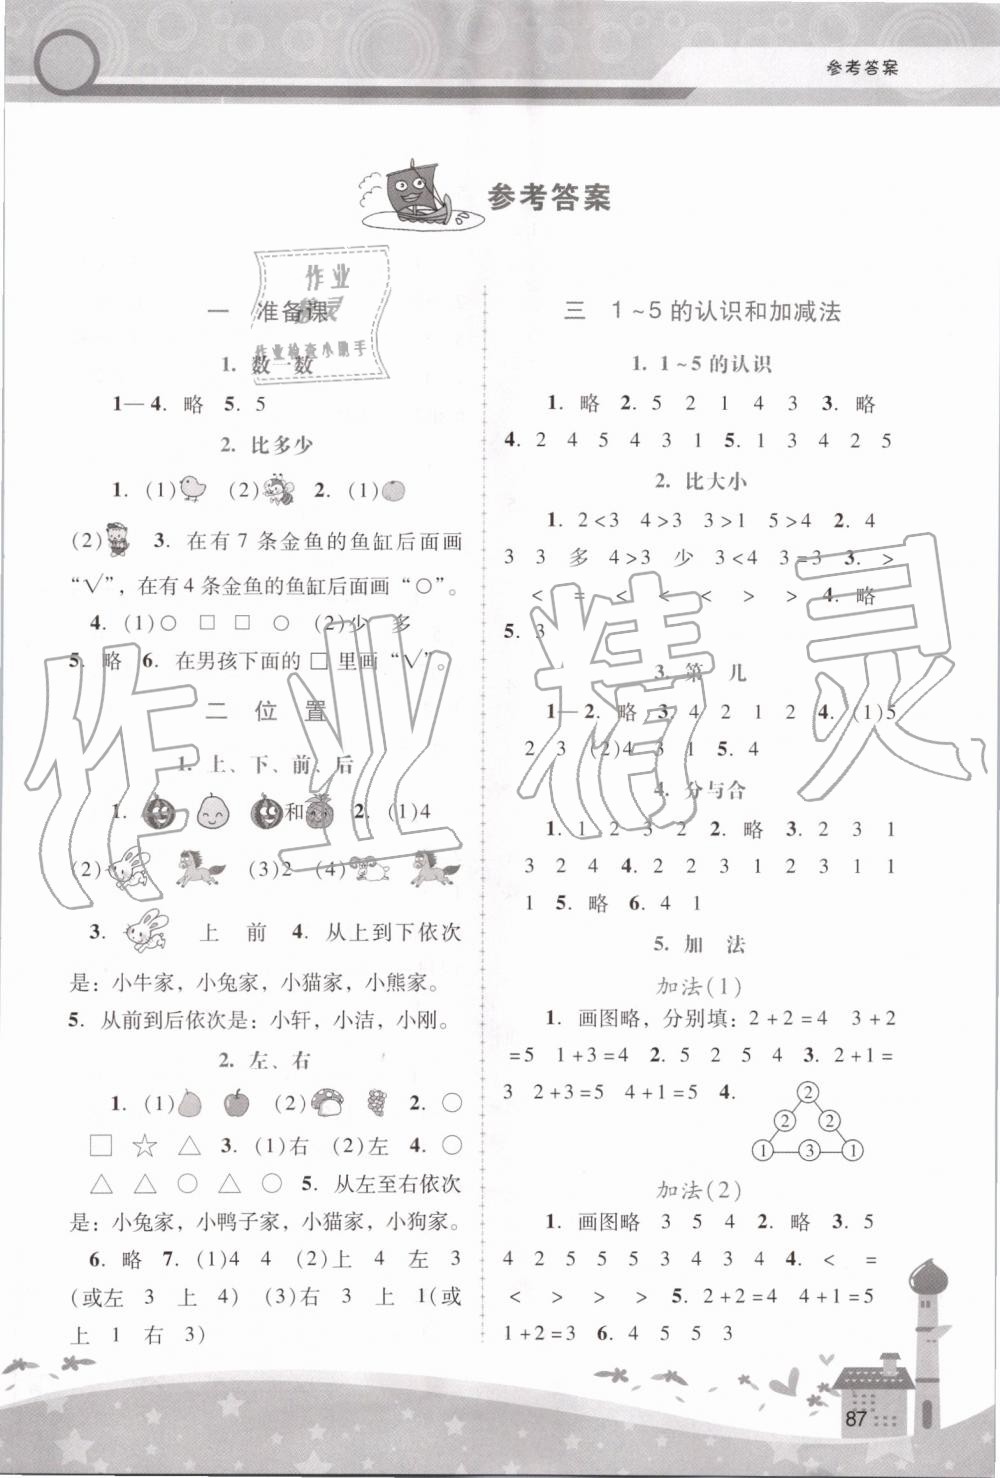 参考答案
参考答案
作业
精灵
作业检查小助手
一 准备课
1. 数一数
1—4. 略 5. 5
2. 比多少
1. (1) (2) 2. (1)
(2) 3. 在有 7 条金鱼的鱼缸后面画
“√”，在有 4 条金鱼的鱼缸后面画“○”。
4. (1)○ □ □ ○ (2)少 多
5. 略 6. 在男孩下面的 □ 里画“√”。
二 位 置
1. 上、下、前、后
1. 和 2. (1)4
(2) (3)2 (4)
3. 上 前 4. 从上到下依次
是：小牛家，小兔家，小猫家，小熊家。
5. 从前到后依次是：小轩，小洁，小刚。
2. 左、右
1. (1) (2) 2. ○
□ ☆ △ 3. (1)右 (2)左 4. ○
△ △ ○ △ ○ 5. 从左至右依次
是：小兔家，小鸭子家，小猫家，小狗家。
6. 略 7. (1)4 4 (2)上 4 左 3
(或左 3 上 4) (3)右 3 上 1(或
上 1 右 3)
三 1~5 的认识和加减法
1. 1~5 的认识
1. 略 2. 5 2 1 4 3 3. 略
4. 2 4 5 4 3 1 5. 1 3 4 2 5
2. 比大小
1. 2<3 4>3 3>1 5>4 2. 4
3 3 多 4>3 少 3<4 3=3 3. >
< = < < < > > 4. 略
5. 3
3. 第 几
1—2. 略 3. 4 2 1 2 4. (1)5
2 3 (2)4 3 1 5. 4
4. 分与合
1. 1 2 3 2 2. 略 3. 2 3 1
3 2 4 4. 2 2 3 1 2 3 1 1
1 5. 略 6. 4 1
5. 加 法
加法(1)
1. 画图略，分别填：2+2=4 3+2
=5 1+3=4 2. 5 2 5 4 3. 2+1=
3 2+3=5 4+1=5 4.
2
2 2
1 3 1
加法(2)
1. 画图略 3 5 4 2. 略 3. 5
4 2 5 5 5 3 4 3 4 4. < =
< > > > 5. 2+2=4 4+1=5
1+2=3 6. 4 5 5 3
87
作业精灵